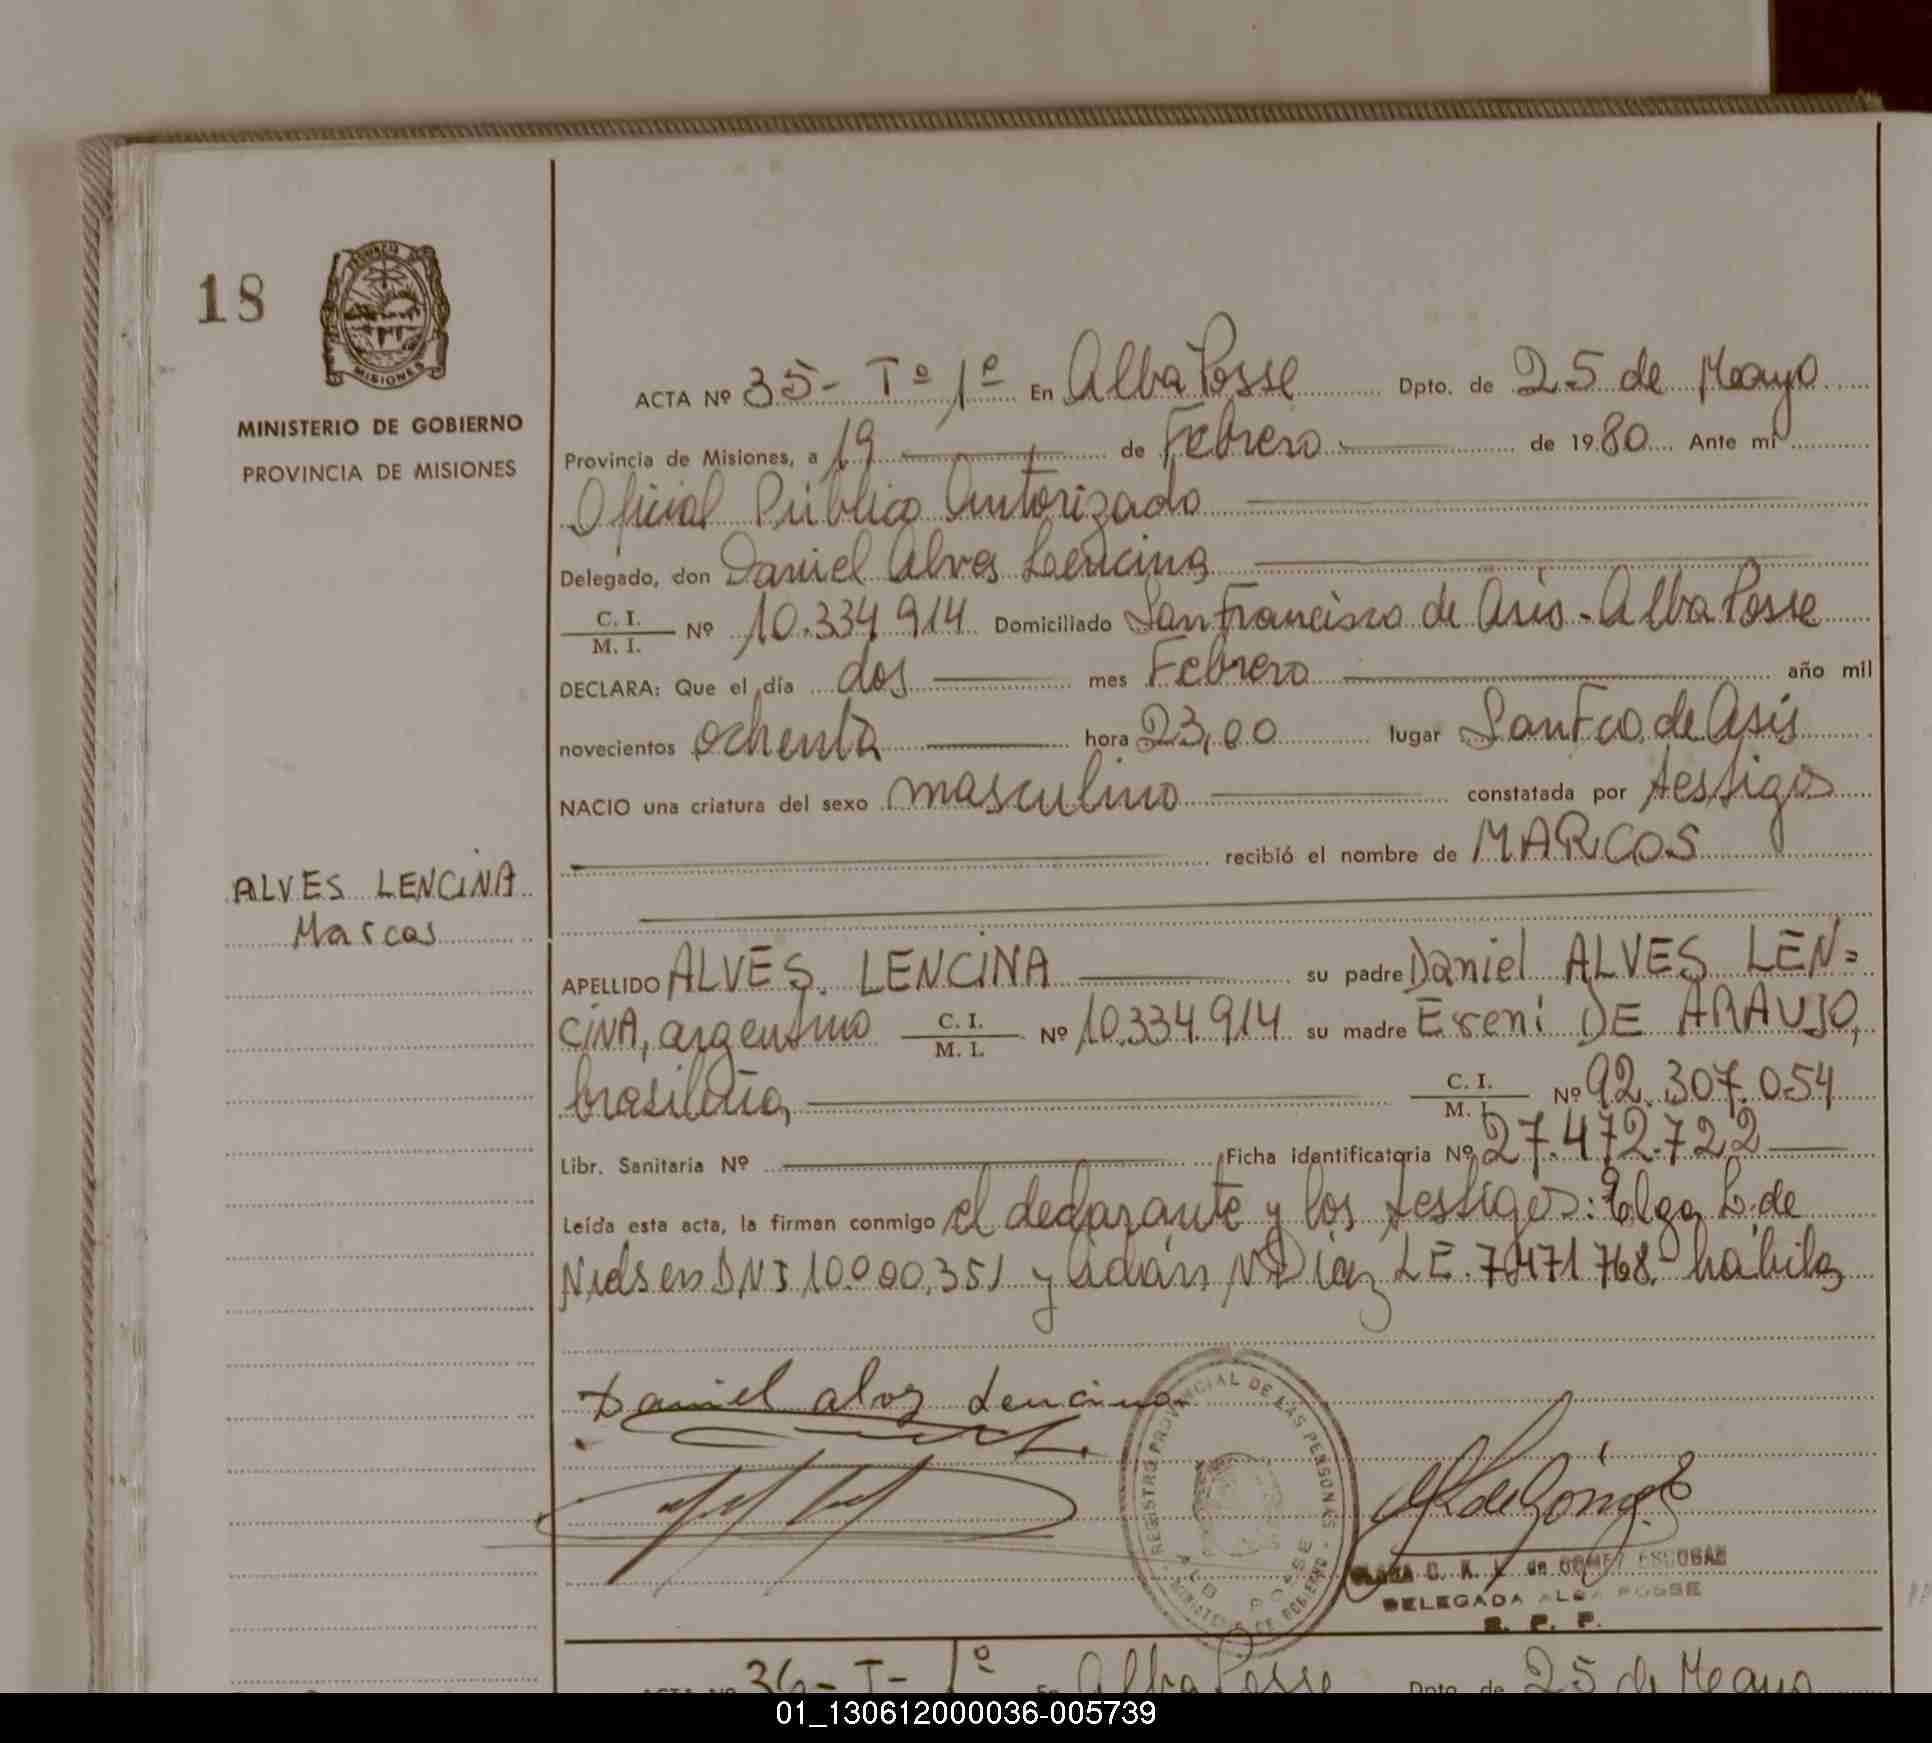 18
MISIONES
MINISTERIO DE GOBIERNO
PROVINCIA DE MISIONES
ACTA Nº 35- Tº 1º En Alba Posse Dpto. de 25 de Mayo
Provincia de Misiones, a 19 de Febrero de 1980 Ante mí
Oficial Público Autorizado
Delegado, don Daniel Alves Lencina
C. I.
M. I. Nº 10.334.914 Domiciliado San Francisco de Asis - Alba Posse
DECLARA: Que el día dos mes Febrero año mil
novecientos ochenta hora 23,00 lugar San Fco. de Asís
NACIO una criatura del sexo masculino constatada por testigos
recibió el nombre de MARCOS
ALVES LENCINA
Marcos
APELLIDO ALVES LENCINA su padre Daniel ALVES LEN=
CINA, argentino C. I. M. I. Nº 10.334.914 su madre Ereni DE ARAUJO,
brasileña, C. I. M. I. Nº 92.307.054
Libr. Sanitaria Nº Ficha identificatoria Nº 27.472.722
Leída esta acta, la firman conmigo el declarante y los testigos: Elga L. de
DNI 10.000.351 y Adán Díaz LE. 7.471.768.- hábiles
Daniel alves Lencina
REGISTRO PROVINCIAL DE LAS PERSONAS
MINISTERIO DE GOBIERNO
ALBA POSSE
de GOMEZ ESCOBAR
DELEGADA ALBA POSSE
R. P. P.
ACTA Nº 36- T- 1º En Alba Posse Dpto. de 25 de Mayo
01_130612000036-005739